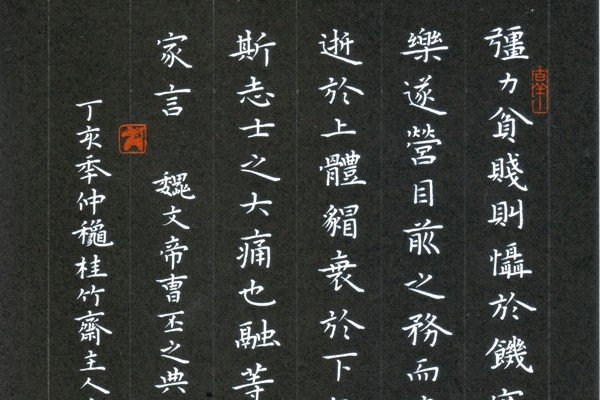 彊力貧賤則懾於饑
樂遂營目前之務而
逝於上體貌衰於下
斯志士之大痛也融等
家言 魏文帝曹丕之典
丁亥秊仲穐桂竹齋主人
吉羊